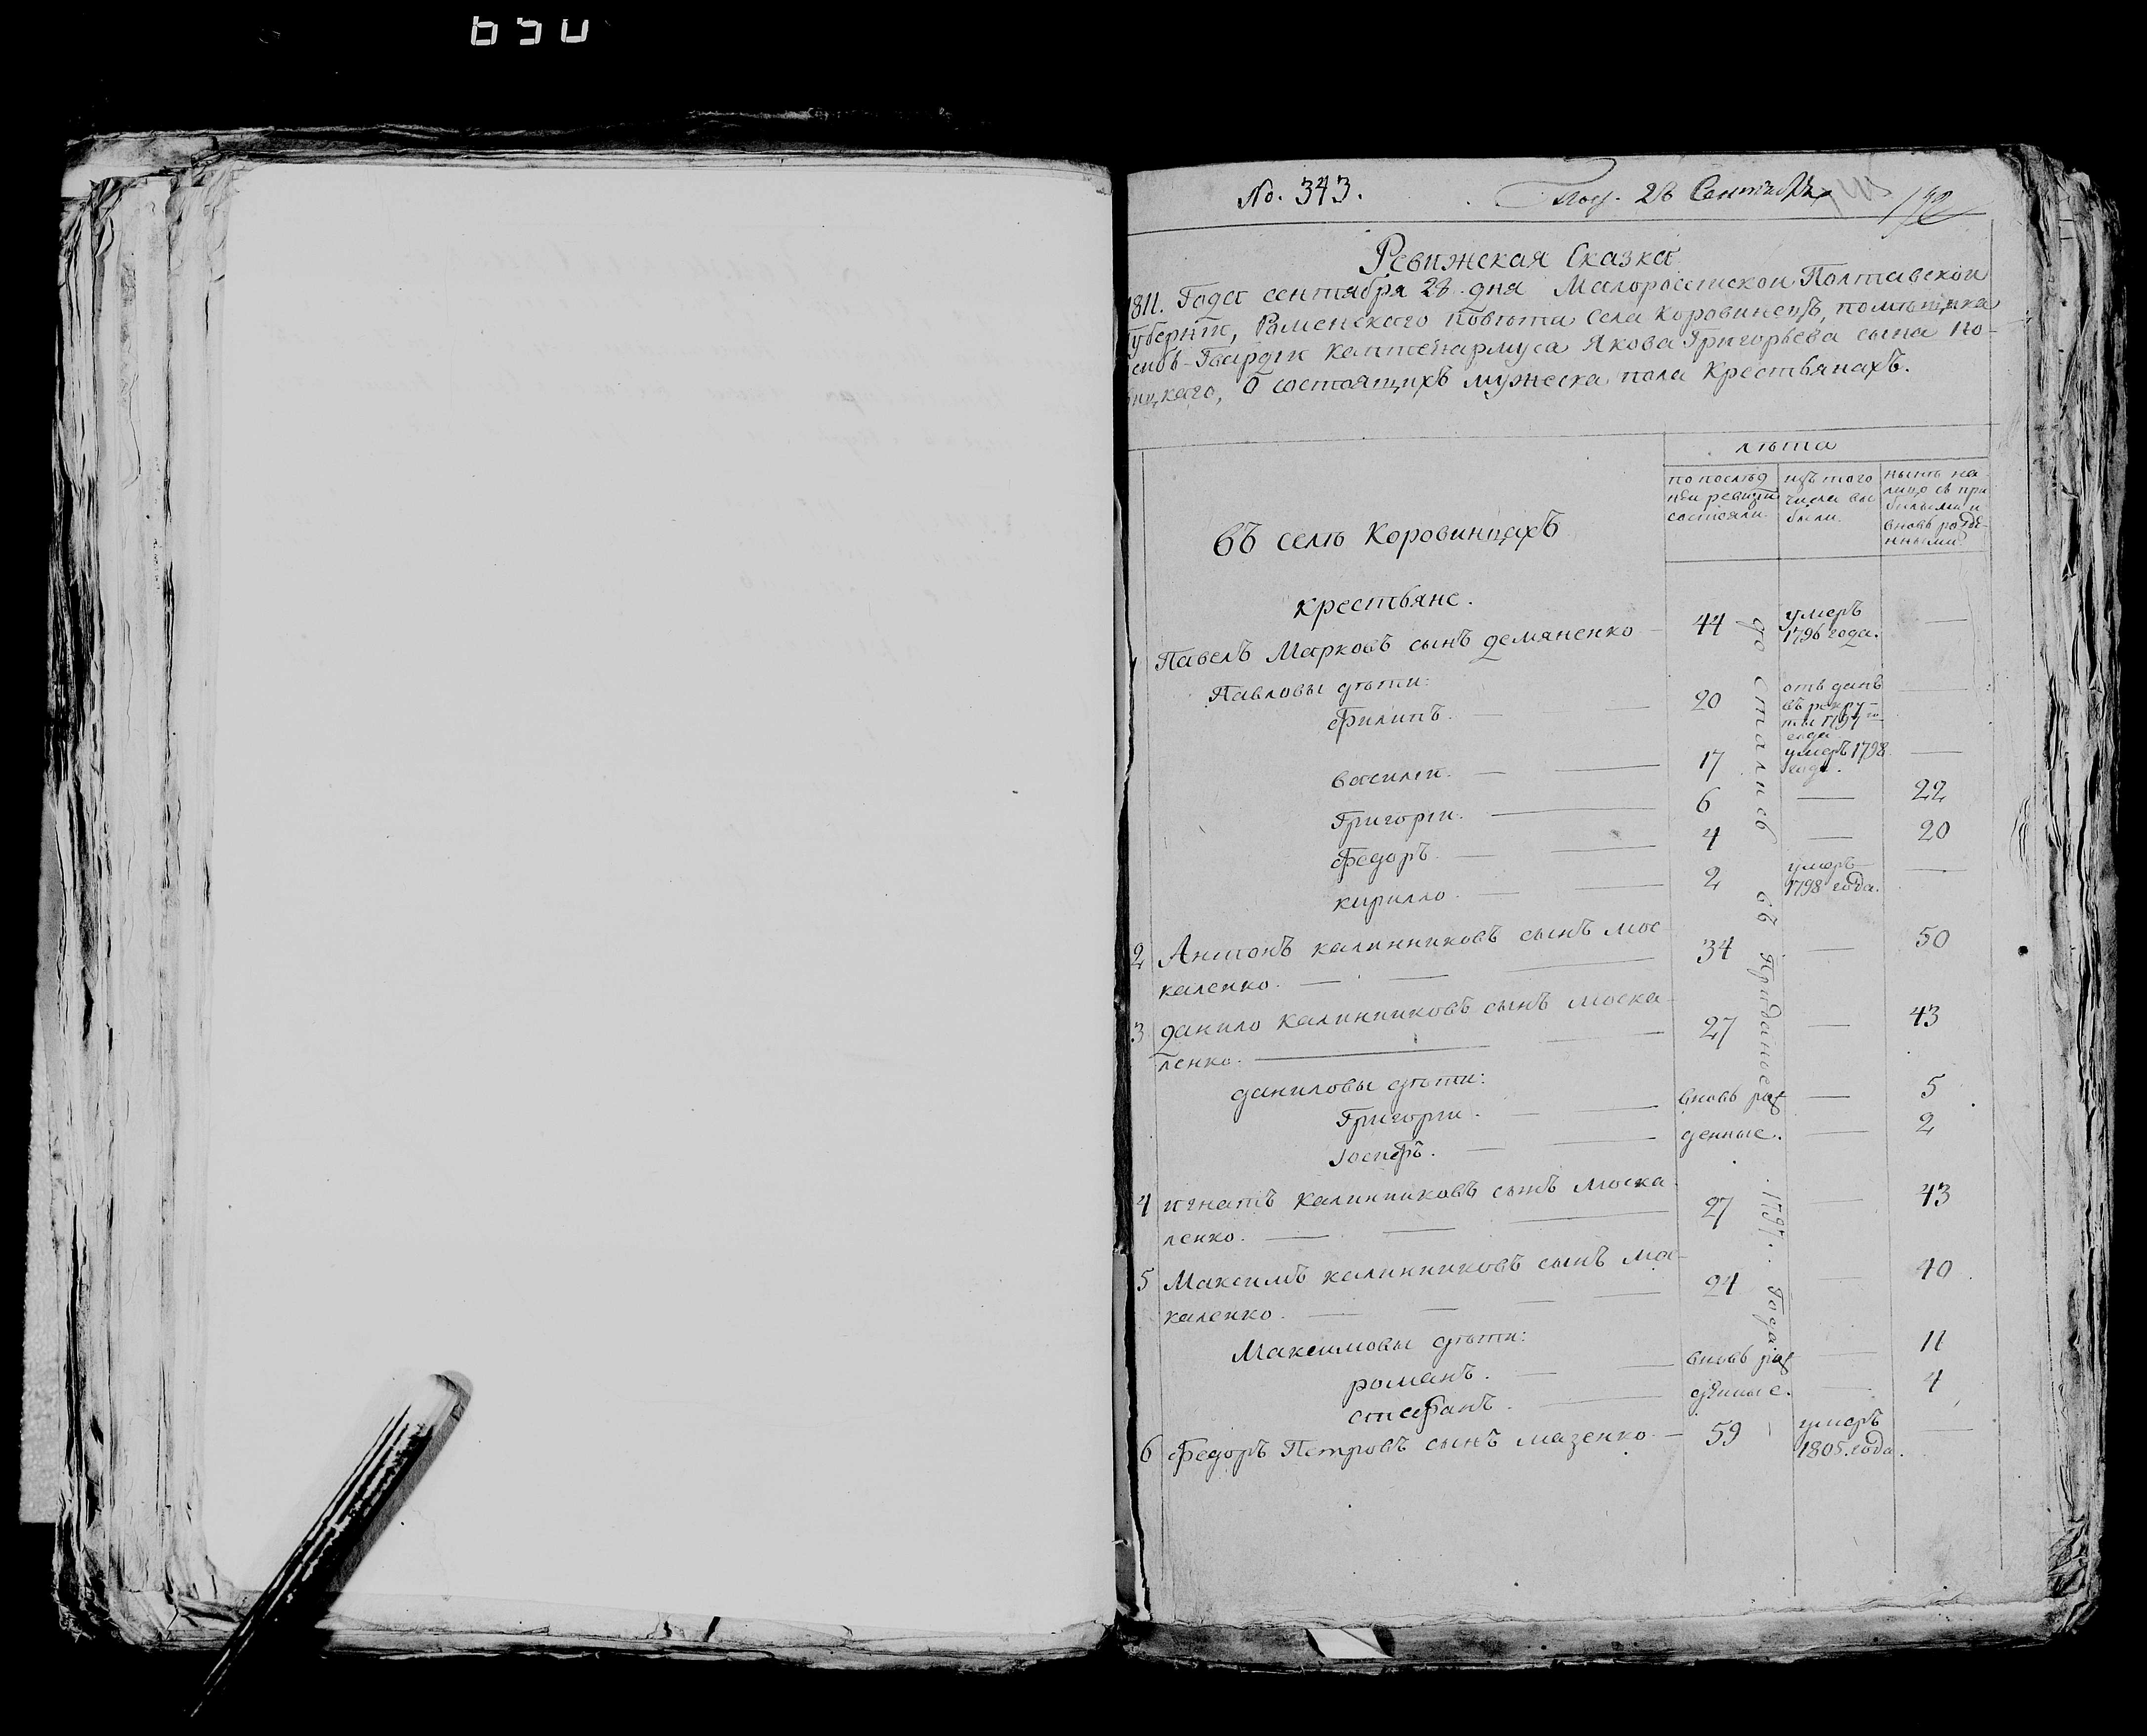 650
No. 343. 28 Сентября
Ревижская Сказка
1811. Года сентября 28. дня Малоросспскои Полтавскои
Губернїи, Роменского повѣта села Коровинецъ, помѣщика
Гвардїи каптенармуса Якова Григорьева сына
О состоящихъ мужеска пола крестьянахъ.
лѣта
въ селѣ Коровинцахъ
по послѣд
неи ревизїи
состояли.
изъ того
числа вы
были.
нынѣ на
лицо съ при
былыми и
вновь рожде-
нными.
крестьяне.
1 Павелъ Марковъ сынъ демяненко 44 умеръ
1796 года. —
Павловы дѣти:
Филипъ. — — 20 отъ данъ
въ рекру-
ты 1797 го
года —
василїи. — — 17 умеръ 1798
года. —
Григорїи. — 6 — 22
Федоръ. — — 4 — 20
кирилло. — — 2 умеръ
1798 года. —
2 Антонъ калинниковъ сынъ мос
каленко. — — — 34 — 50
3 данило калинниковъ сынъ моска-
ленко. — — 27 — 43
даниловы дѣти:
Григорїи. — — вновь рож — 5
Іосифъ. — — денные. — 2
4 игнатъ калинниковъ сынъ моска
ленко. — — — 27 — 43
5 Максимъ калинниковъ сынъ мо-
каленко. — — — — 24 — 40
Максимовы дѣти:
романъ. — — вновь рож — 11
стефанъ. — — денные. — 4
6 Федоръ Петровъ сынъ мазенко — 59 умеръ
1805. года. —
достались въ Приданые 1797. Года